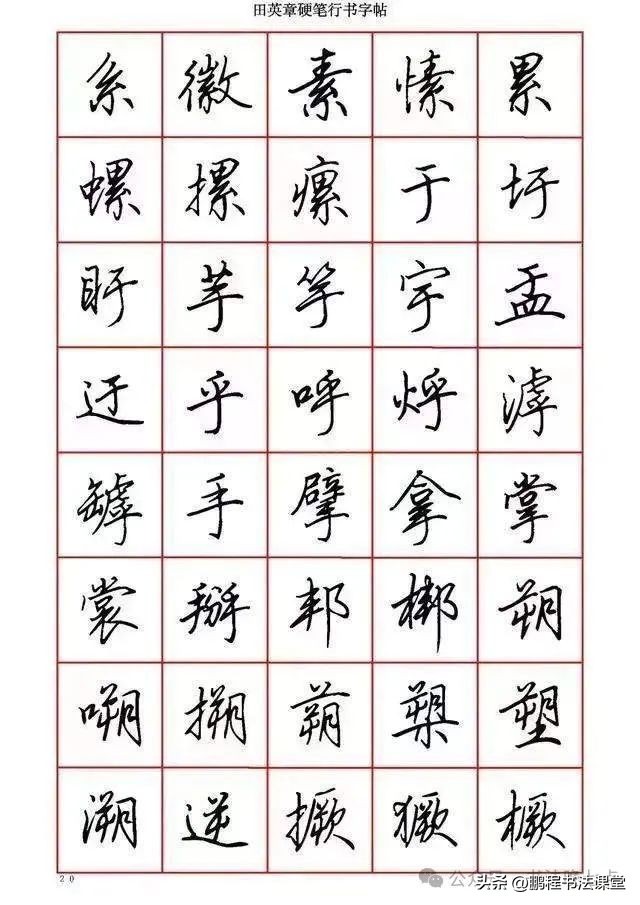 田英章硬笔行书字帖
系 徽 素 愫 累
螺 摞 瘰 于 圩
盱 芋 竽 宇 盂
迂 乎 呼 烀 滹
罅 手 擘 拿 掌
裳 掰 邦 梆 朔
嗍 搠 蒴 槊 塑
溯 逆 撅 獗 橛
20
头条 @鹏程书法课堂